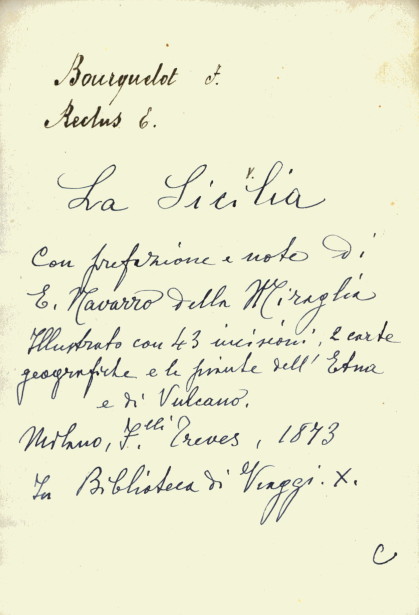 Bourquelot F.
Reclus E.
v.
La Sicilia
Con prefazione e note di
E. Navarro della Miraglia
Illustrato con 43 incisioni, 2 carte
geografiche e le piante dell' Etna
e di Vulcano.
Milano, F.lli Treves, 1873
In Biblioteca di Viaggi. X.
C